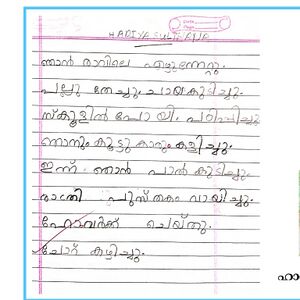 HADIYA SULTHANA
ഞാൻ രാവിലെ എഴുന്നേറ്റു.
പല്ലു തേച്ചു. ചായകുടിച്ചു.
സ്കൂളിൽ പോയി. പഠിച്ചു
ഞാനും കൂട്ടുകാരും കളിച്ചു.
ഇന്ന് ഞാൻ പാൽ കുടിച്ചു.
രാത്രി പുസ്തകം വായിച്ചു.
ഹോംവർക്ക് ചെയ്തു.
ചോറ് കഴിച്ചു.
ഹാ